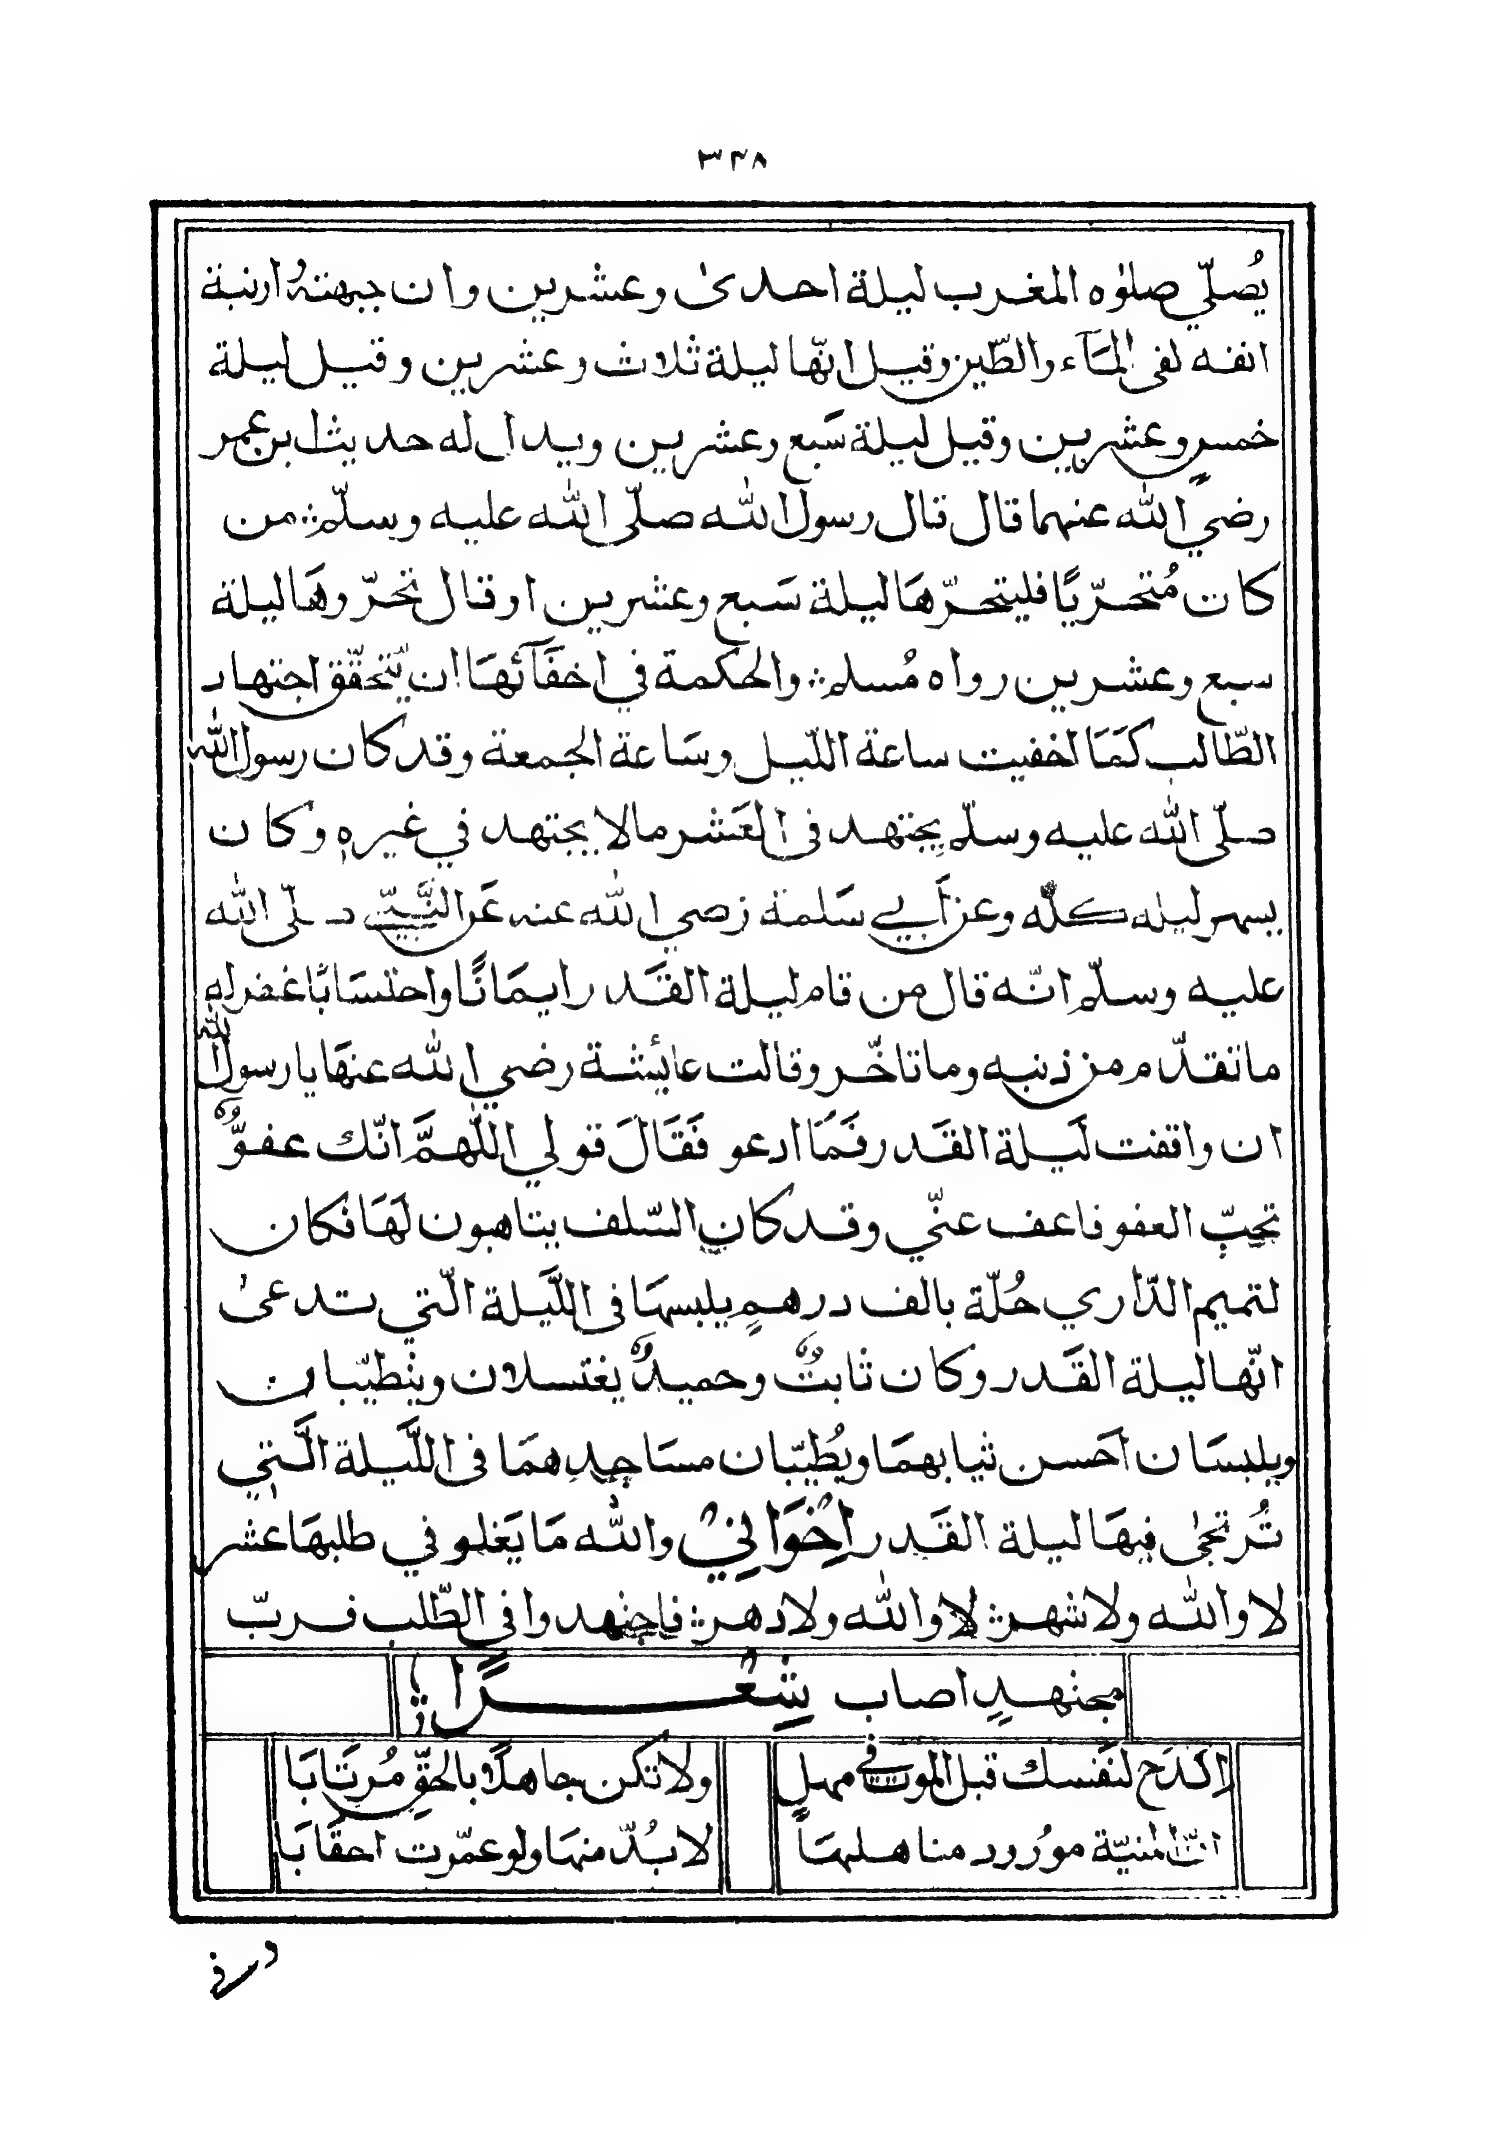 ٣٣٨
يُصلّي صلوٰه المغرب ليلة احدىٰ وعشرين وان جبهتهُ ارنبة
انفه لفى المَآء والطّين وقيل انّها ليلة ثلاث وعشرين وقيل ليلة
خمسٍ وعشرين وقيل ليلة سَبع وعشرين ويدل له حديث ابن عمر
رضي الله عنهما قال قال رسول الله صلّى الله عليه وسلّم من
كان مُتحرّيًا فليتحرّهَا ليلة سَبع وعشرين او قال تحرّوهَا ليلة
سبع وعشرين رواه مُسلم والحكمة في اخفَآئهَا ان يّتحقّق اجتهاد
الطّالب كمَا اخفيت ساعة اللّيل وسَاعة الجمعة وقد كان رسول الله
صلّى الله عليه وسلّم يجتهد فى العَشر مالا يجتهد في غيره وكان
يسهر ليله كلّه وعن أبي سَلمة رضي الله عنه عَن النَّبيّ صلّى الله
عليه وسلّم انّه قال من قام ليلة القَدر ايمَانًا واحتسَابًا غفر له
ما تقدّم من ذنبه وما تاخّر وقالت عايئشة رضي الله عنهَا يا رسول الله
ان واقفت لَيلة القَدر فَمَا ادعو فَقَالَ قولي اللّهمَّ انّك عفوٌّ
تحبّ العفو فاعف عنّي وقد كان السّلف يتاهبون لَهَا فكان
لتميم الدّاري حُلّة بالف درهمٍ يلبسهَا فى اللَّيلة الّتي تدعىٰ
انّها ليلة القَدر وكان ثابتٌ وحميدٌ يغتسلان ويتطيّبان
ويلبسَان اَحَسن ثيابهمَا ويُطيّبان مسَاجِدِهمَا فى اللَّيلة الَّتي
تُرتجىٰ فيهَا ليلة القَدر اِخْوَانِيْ والله مَا يَغلو في طلبهَا عشر
لا والله ولا شهر لا والله ولا دهر فاجتهدوا فى الطّلب فربّ
مجتهدٍ اصاب شِعْرًا
اكدَح لنَفسك قبل الموت في مهلٍ ولا تكن جاهدًا بالحقِّ مُرتَابَا
انّ المنيّة مورُود مناهلهَا لا بُدّ منهَا ولو عمّرت احقَابَا
وفي